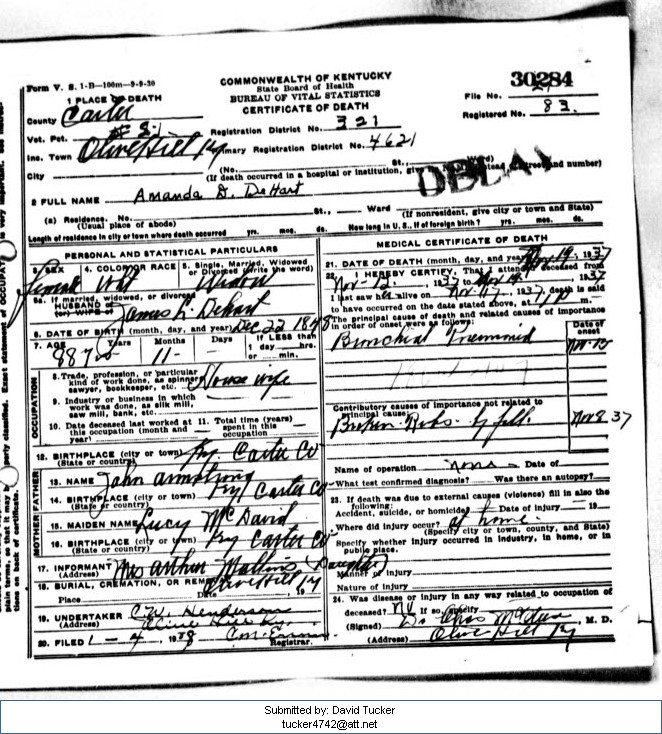 Form V. S. 1-B—100m—9-9-30
COMMONWEALTH OF KENTUCKY
State Board of Health
BUREAU OF VITAL STATISTICS
CERTIFICATE OF DEATH
30284
File No.
Registered No. 83.
1 PLACE OF DEATH
County Carter
Vot. Pct. #8
Registration District No. 321
Inc. Town Olive Hill Ky
Primary Registration District No. 4621
City
(No. St., Ward)
(If death occurred in a hospital or institution, give instead of street and number)
DELAY
2 FULL NAME Amanda D. DeHart
(a) Residence. No. St., Ward
(Usual place of abode) (If nonresident, give city or town and State)
Length of residence in city or town where death occurred yrs. mos. ds. How long in U. S., if of foreign birth? yrs. mos. ds.
PERSONAL AND STATISTICAL PARTICULARS
3. SEX 4. COLOR OR RACE 5. Single, Married, Widowed
or Divorced (write the word)
female Wht Widow
5a. If married, widowed, or divorced
HUSBAND of
(or) WIFE of James L. Dehart
6. DATE OF BIRTH (month, day, and year) Dec 22 1848
7. AGE Years Months Days If LESS than
1 day hrs.
or min.
88 11
OCCUPATION
8. Trade, profession, or particular
kind of work done, as spinner,
sawyer, bookkeeper, etc. House wife
9. Industry or business in which
work was done, as silk mill,
saw mill, bank, etc.
10. Date deceased last worked at
this occupation (month and
year)
11. Total time (years)
spent in this
occupation
12. BIRTHPLACE (city or town) Ky. Carter Co
(State or country)
FATHER
13. NAME John armstrong
14. BIRTHPLACE (city or town) Ky Carter Co
(State or country)
MOTHER
15. MAIDEN NAME Lucy McDavid
16. BIRTHPLACE (city or town) Ky Carter Co
(State or country)
17. INFORMANT Mrs arthur Mullins (Daughter)
(Address) Olive Hill Ky
18. BURIAL, CREMATION, OR REMOVAL
Place Date 19
19. UNDERTAKER C.W. Henderson
(Address) Olive Hill Ky.
20. FILED 1-4, 1938
Registrar.
MEDICAL CERTIFICATE OF DEATH
21. DATE OF DEATH (month, day, and year) Nov 19, 1937
22. I HEREBY CERTIFY, That I attended deceased from
Nov-12, 1937 to Nov 19, 1937
I last saw her alive on Nov 17, 1937, death is said
to have occurred on the date stated above, at 1 p m.
The principal cause of death and related causes of importance
in order of onset were as follows:
Date of
onset
Bronchial Pneumonia Nov-12
Contributory causes of importance not related to
principal cause:
Broken Ribs by fall. Nov 8 37
Name of operation none Date of
What test confirmed diagnosis? Was there an autopsy?
23. If death was due to external causes (violence) fill in also the
following:
Accident, suicide, or homicide? Date of injury 19
Where did injury occur? at home.
(Specify city or town, county, and State)
Specify whether injury occurred in industry, in home, or in
public place.
Manner of injury
Nature of injury
24. Was disease or injury in any way related to occupation of
deceased? No If so, specify
(Signed) M. D.
(Address) Olive Hill Ky
Submitted by: David Tucker
tucker4742@att.net